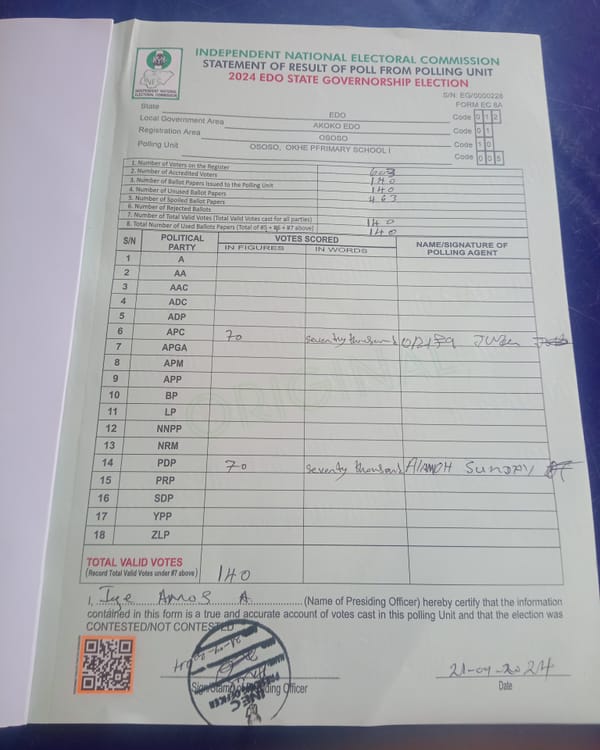 INDEPENDENT NATIONAL ELECTORAL COMMISSION
STATEMENT OF RESULT OF POLL FROM POLLING UNIT
2024 EDO STATE GOVERNORSHIP ELECTION
INEC
INDEPENDENT NATIONAL
ELECTORAL COMMISSION
S/N: EG/0000228
FORM EC 8A
State EDO Code 0 1 2
Local Government Area AKOKO EDO Code 0 1
Registration Area OSOSO Code 1 0
Polling Unit OSOSO, OKHE PFRIMARY SCHOOL I Code 0 0 5
1. Number of Voters on the Register 603
2. Number of Accredited Voters 140
3. Number of Ballot Papers Issued to the Polling Unit 140
4. Number of Unused Ballot Papers 463
5. Number of Spoiled Ballot Papers
6. Number of Rejected Ballots
7. Number of Total Valid Votes (Total Valid Votes cast for all parties) 140
8. Total Number of Used Ballots Papers (Total of #5 + #6 + #7 above) 140
S/N POLITICAL PARTY VOTES SCORED NAME/SIGNATURE OF POLLING AGENT
IN FIGURES IN WORDS
1 A
2 AA
3 AAC
4 ADC
5 ADP
6 APC 70 seventy thousand
7 APGA
8 APM
9 APP
10 BP
11 LP
12 NNPP
13 NRM
14 PDP 70 seventy thousand SUNDAY
15 PRP
16 SDP
17 YPP
18 ZLP
ORIGINAL
TOTAL VALID VOTES 140
(Record Total Valid Votes under #7 above)
I, Ige Amos A (Name of Presiding Officer) hereby certify that the information
contained in this form is a true and accurate account of votes cast in this polling Unit and that the election was
CONTESTED/NOT CONTESTED
21-09-2024
Sign/Stamp of Presiding Officer Date
INEC
PRESIDING OFFICER